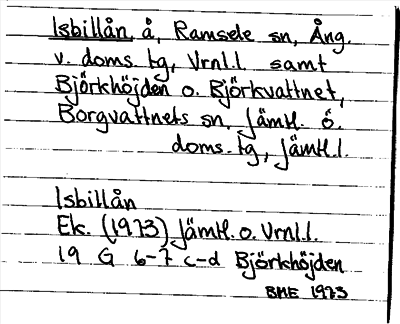 Isbillån, å, Ramsele sn, Ång.
v. doms. tg, Vrnl.l. samt
Björkhöjden o. Björkvattnet,
Borgvattnets sn, Jämtl. ö.
doms. tg, Jämtl.l.
Isbillån
Ek. (1973) Jämtl. o. Vrnl.l.
19 G 6-7 c-d Björkhöjden
BME 1973